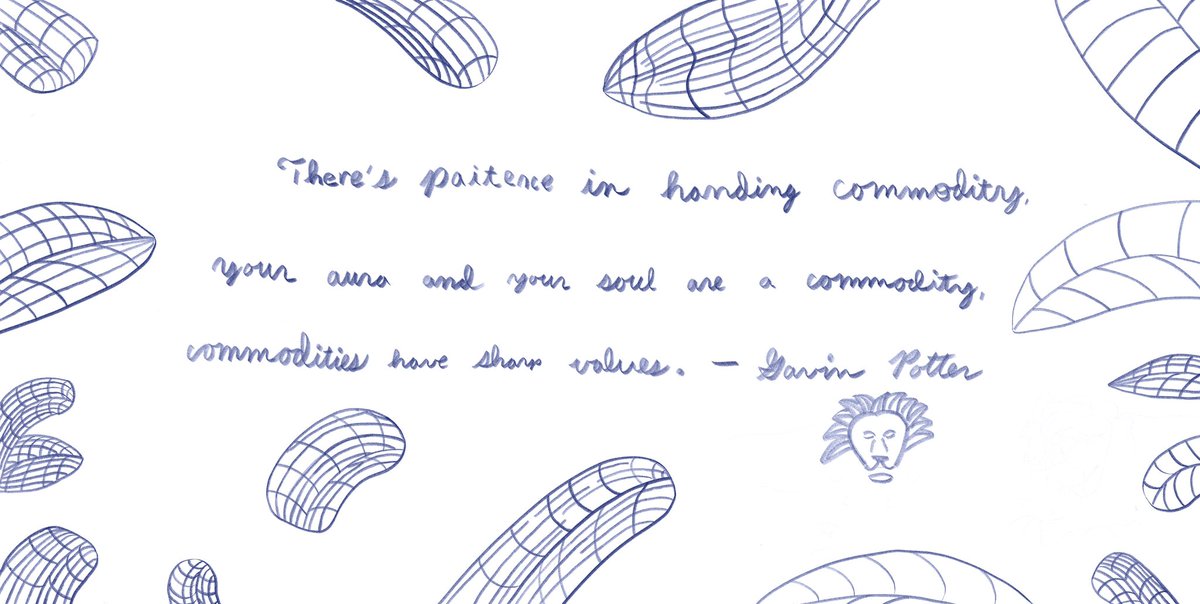 There's paitence in handing commoditry,
your aura and your soul are a commoditry,
commodities have sharp values. — Gavin Potter